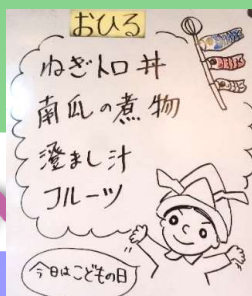 おひる
ねぎトロ丼
南瓜の煮物
澄まし汁
フルーツ
今日はこどもの日